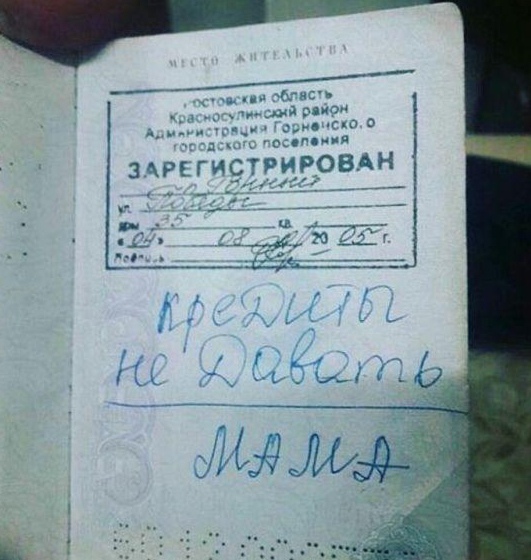 МЕСТО ЖИТЕЛЬСТВА
Ростовская область
Красносулинский район
Администрация Горненского
городского поселения
ЗАРЕГИСТРИРОВАН
п. Горный
ул. Победы
дом 35 кв.
«04» 08 2005 г.
Подпись
кредиты
не давать
МАМА